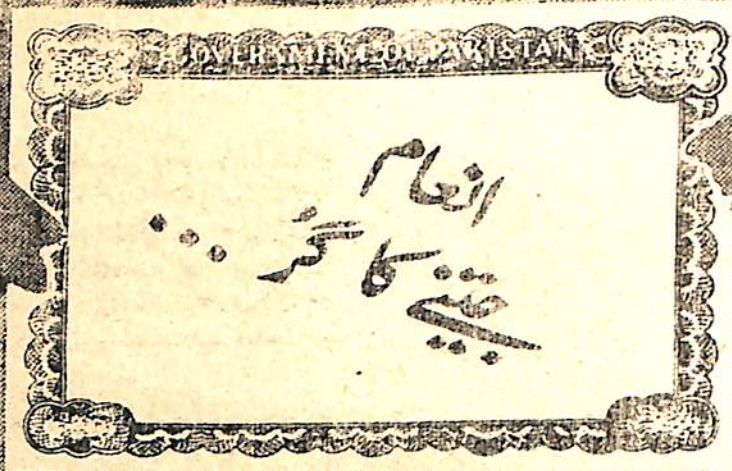 GOVERNMENT OF PAKISTAN
انعام
جیتنے کا گُر ...